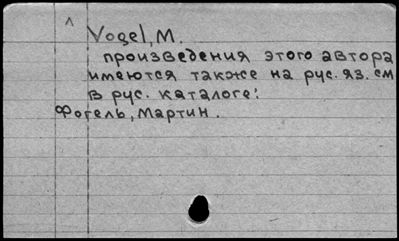 Vogel, M.
произведения этого автора
имеются также на рус. яз. см
в рус. каталоге:
Фогель, Мартин.